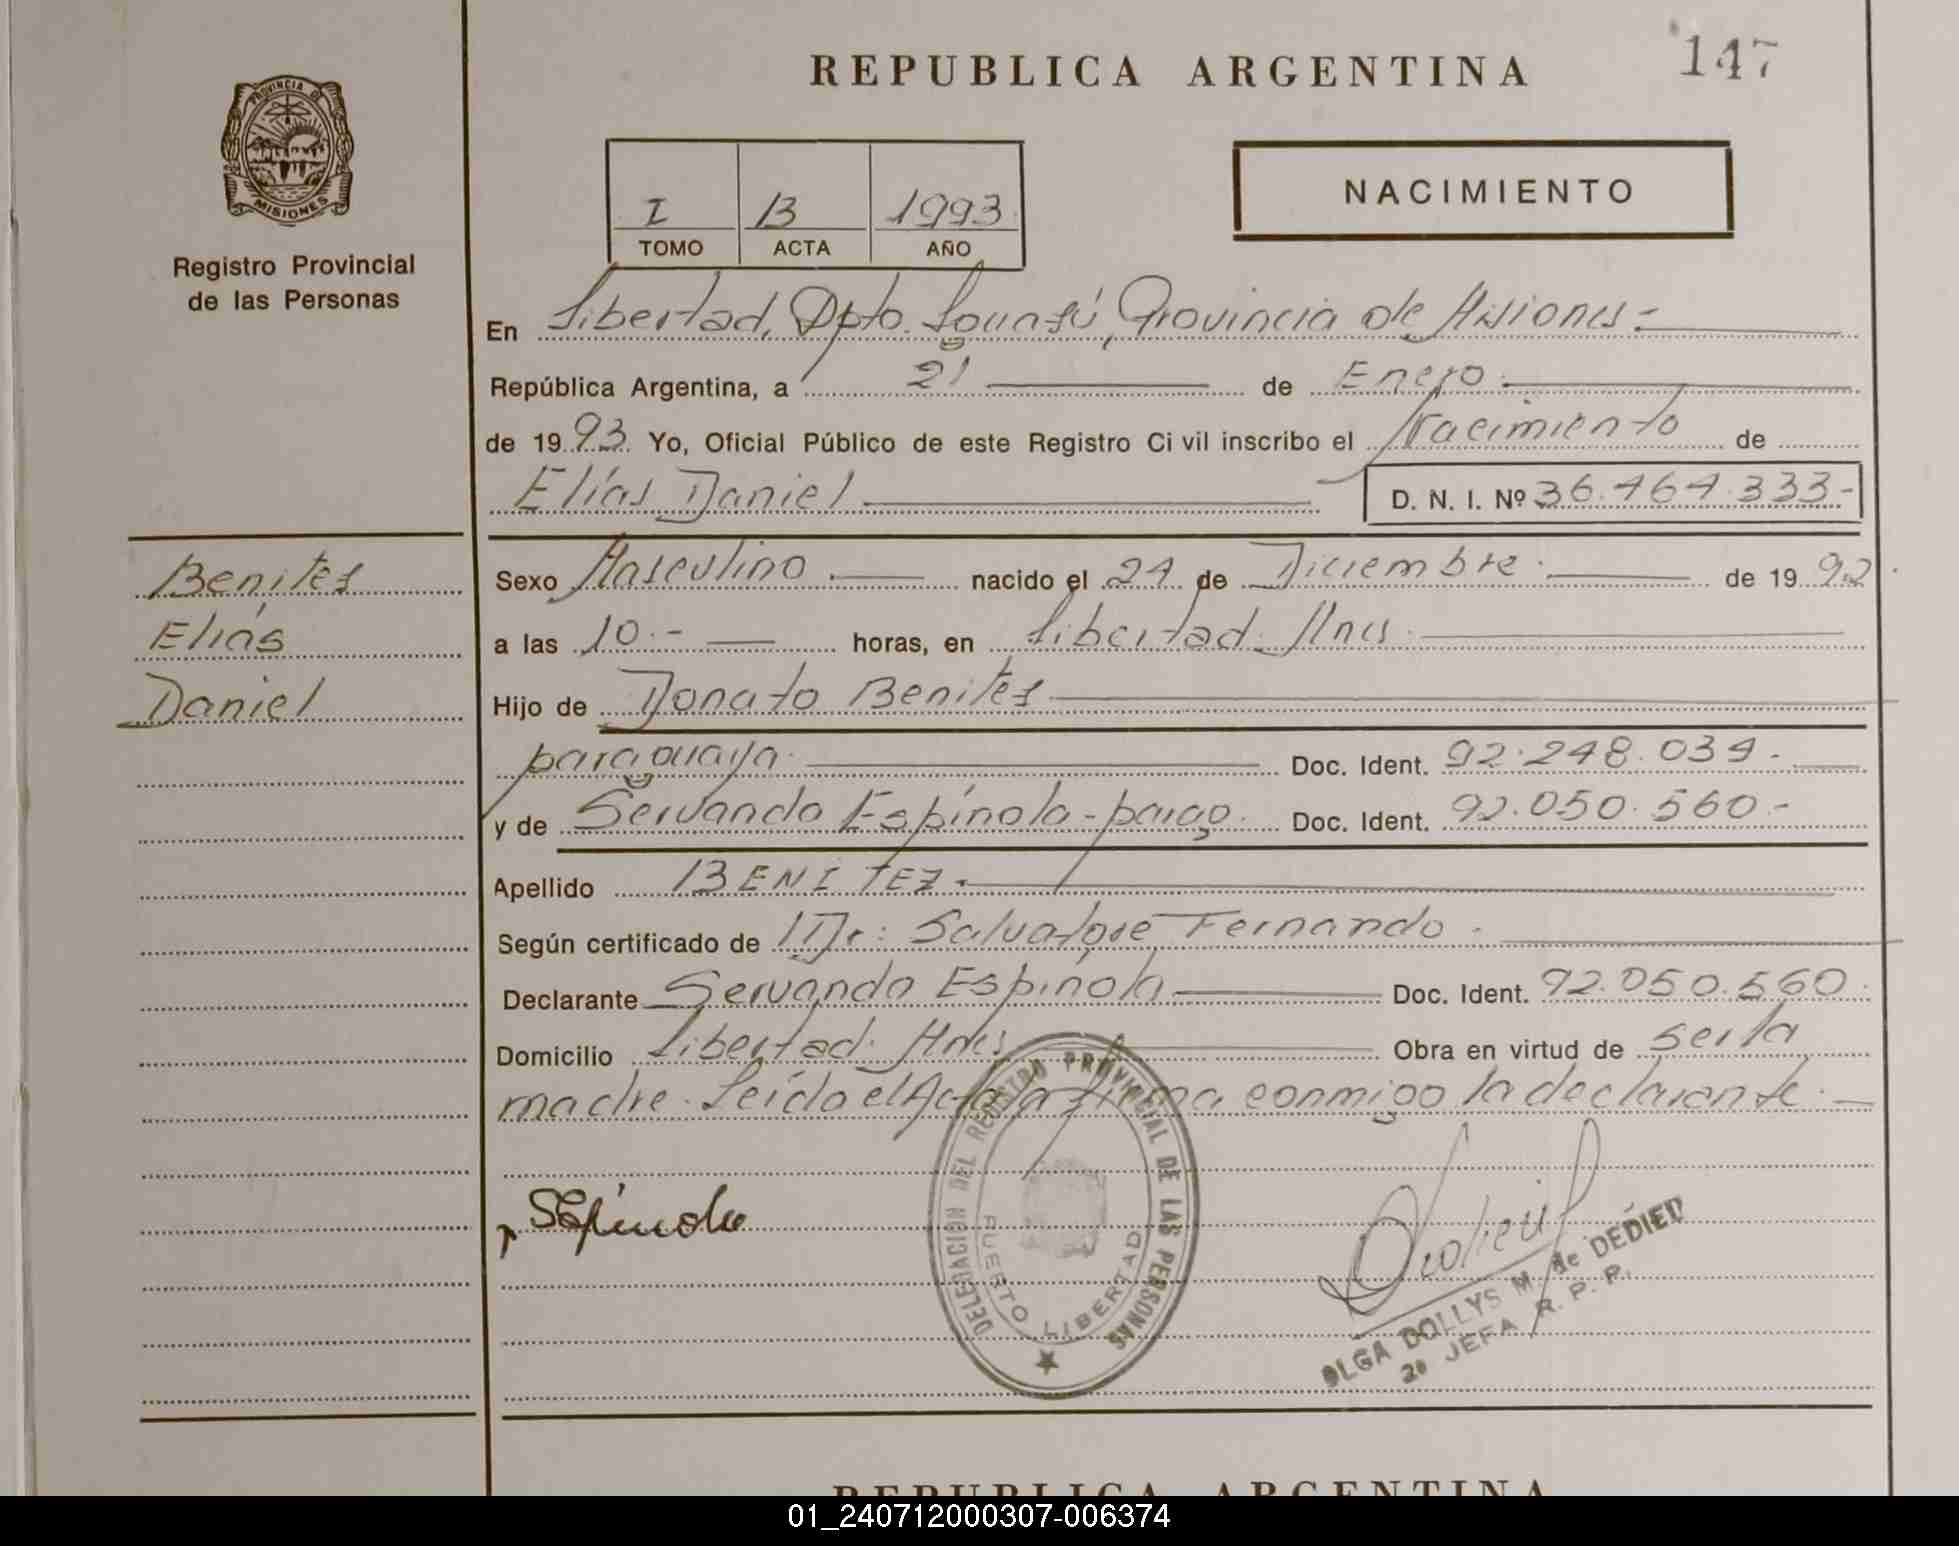 REPUBLICA ARGENTINA
147
PROVINCIA DE
MISIONES
Registro Provincial
de las Personas
I 13 1993
TOMO ACTA AÑO
NACIMIENTO
En Libertad, Dpto. Iguazú, Provincia de Misiones -
República Argentina, a 21 de Enero
de 1993 Yo, Oficial Público de este Registro Civil inscribo el Nacimiento de
Elías Daniel D. N. I. Nº 36.464.333-
Benites
Elías
Daniel
Sexo Masculino nacido el 24 de Diciembre de 1992
a las 10.- horas, en Libertad. Mnes
Hijo de Donato Benites
paraguaya Doc. Ident. 92.248.034.-
y de Servanda Espínola - parag. Doc. Ident. 92.050.560-
Apellido BENITEZ.
Según certificado de Dr: Salvatore Fernando.
Declarante Servanda Espínola Doc. Ident. 92.050.560.
Domicilio Libertad. Mnes Obra en virtud de ser la
madre. Leído el Acta firma conmigo la declarante.
SEspinola
DELEGACION DEL REGISTRO PROVINCIAL DE LAS PERSONAS
PUERTO LIBERTAD
OLGA DOLLYS M. de DEDIEU
2a JEFA R. P. P.
REPUBLICA ARGENTINA
01_240712000307-006374